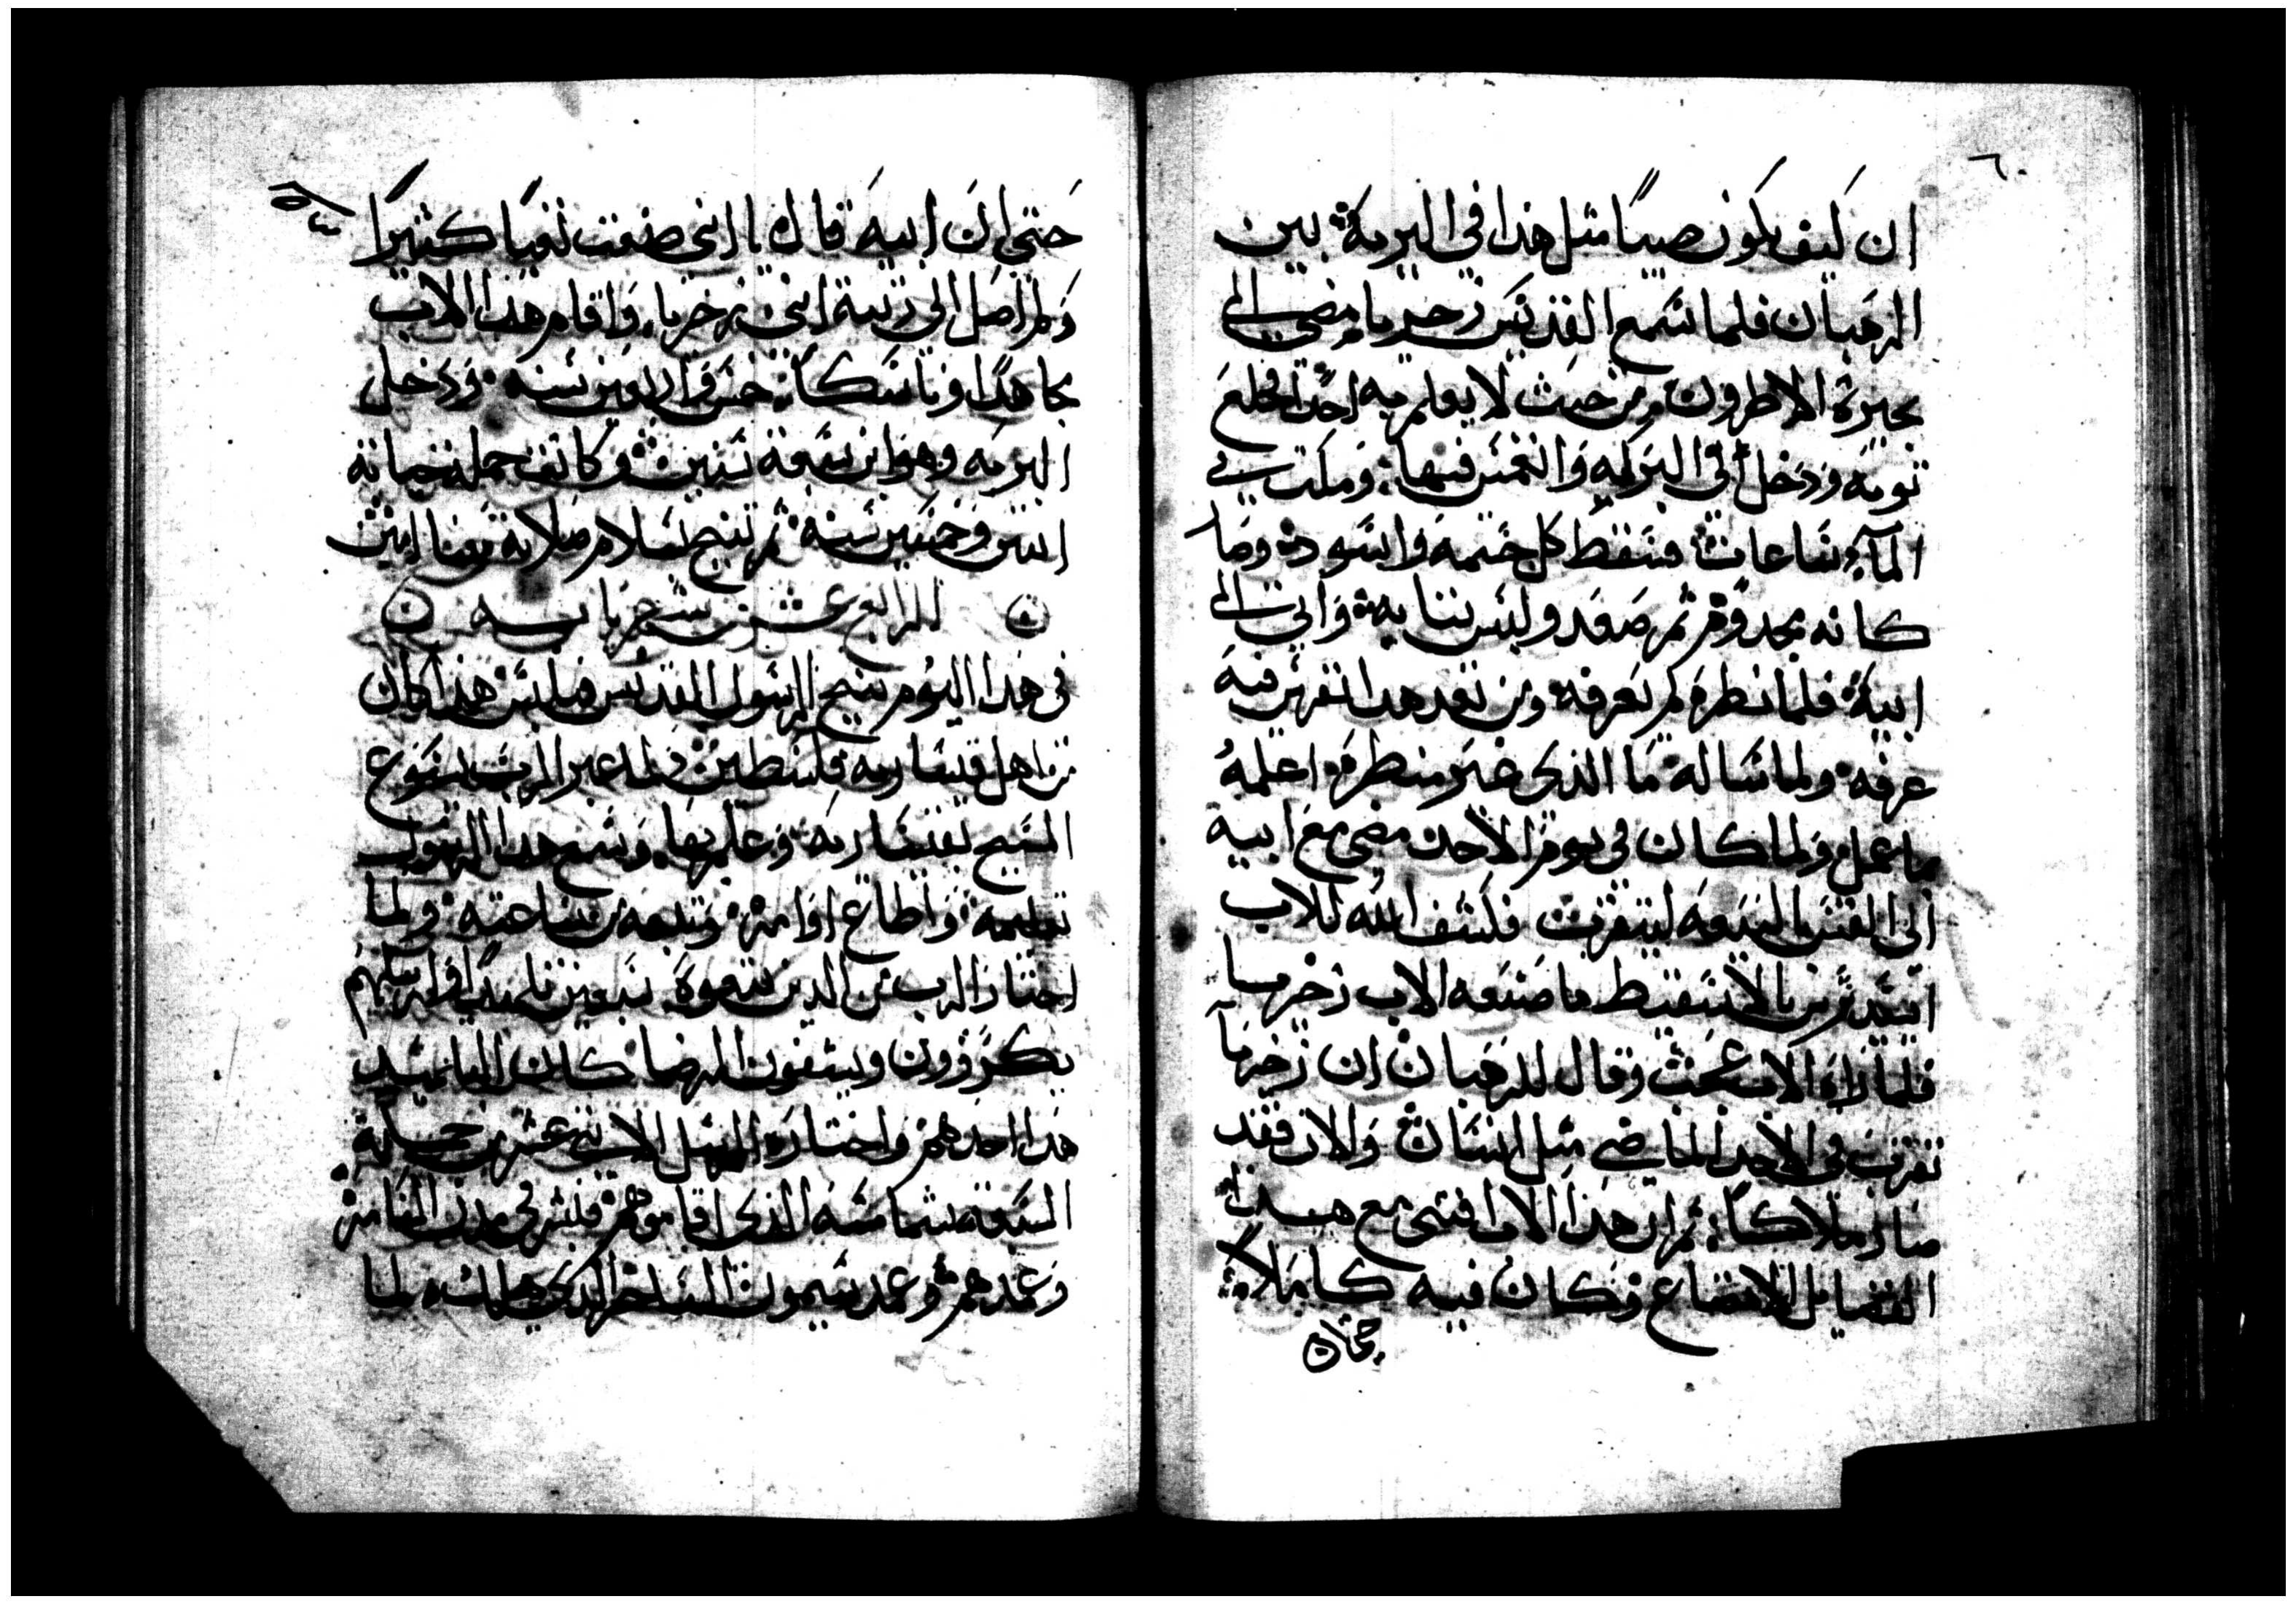 ٦٠
ان كيف يكون صبيًا مثل هدا في البرية بين
الرهبان فلما سمع القديس زخريا مضي الى
بحيرة الاطرون من حيث لا يعلم به احدًا فخلع
توبه ودخل الى البركه وانغمس فيها وملت في
المآء ساعات فسقط كل جسمه واسود وصا
كانه مجدوم ثم صعد ولبس تيابه واتى الى
ابيه فلما نطره لم يعرفه ومن بعد هدا تفرس فيه
عرفه ولما ساله ما الدى غير منطره اعلمه
بما عمل ولما كان فى يوم الاحد مضى مع ابيه
الى القس بالبيعه ليتقرب فكشف الله للاب
ايسيدرس بالاسقيط ما صنعه الاب زخريا
فلما راه الاب عجب وقال للرهبان ان زخريا
تقرب في الاحد الماضي مثل انسان والان فقد
صار ملاكًا ثم ان هدا الاب اقتنى مع هده
الفضايل الاتضاع وكان فيه كاملا
حتى ان
حتي ان ابيه قال اننى صنعت تعبًا كثيرًا
ولم اصل الى رتبة ابنى زخريا واقام هدا الاب
مجاهدًا وناسكًا خمس واربعين سنه ودخل
البريه وهو ابن سبعة سنين وكانت جملة حياته
اتنين وخمسين سنه ثم تنيح بسلام صلاته معنا امين
الرابع عشر من شهر بابه
في هدا اليوم تنيح الرسول القديس فيلبس هدا كان
من اهل قيساريه فلسطين ولما عبر الرب يسوع
المسيح بقيساريه وعلم بها وسمع هدا الرسول
تعليمه واطاع اوامره وتبعه من ساعته ولما
اختار الرب من الدين تبعوه سبعين تلميدًا وارسلهم
يكرزون ويشفون المرضا كان التلميد
هدا احدهم واختاره الرسل الاتنى عشر من جملة
السبعة شمامسه الدى اقاموهم فبشر فى مدن السامره
وعمدهم وعمد سيمون الساحر الدى هلك لما